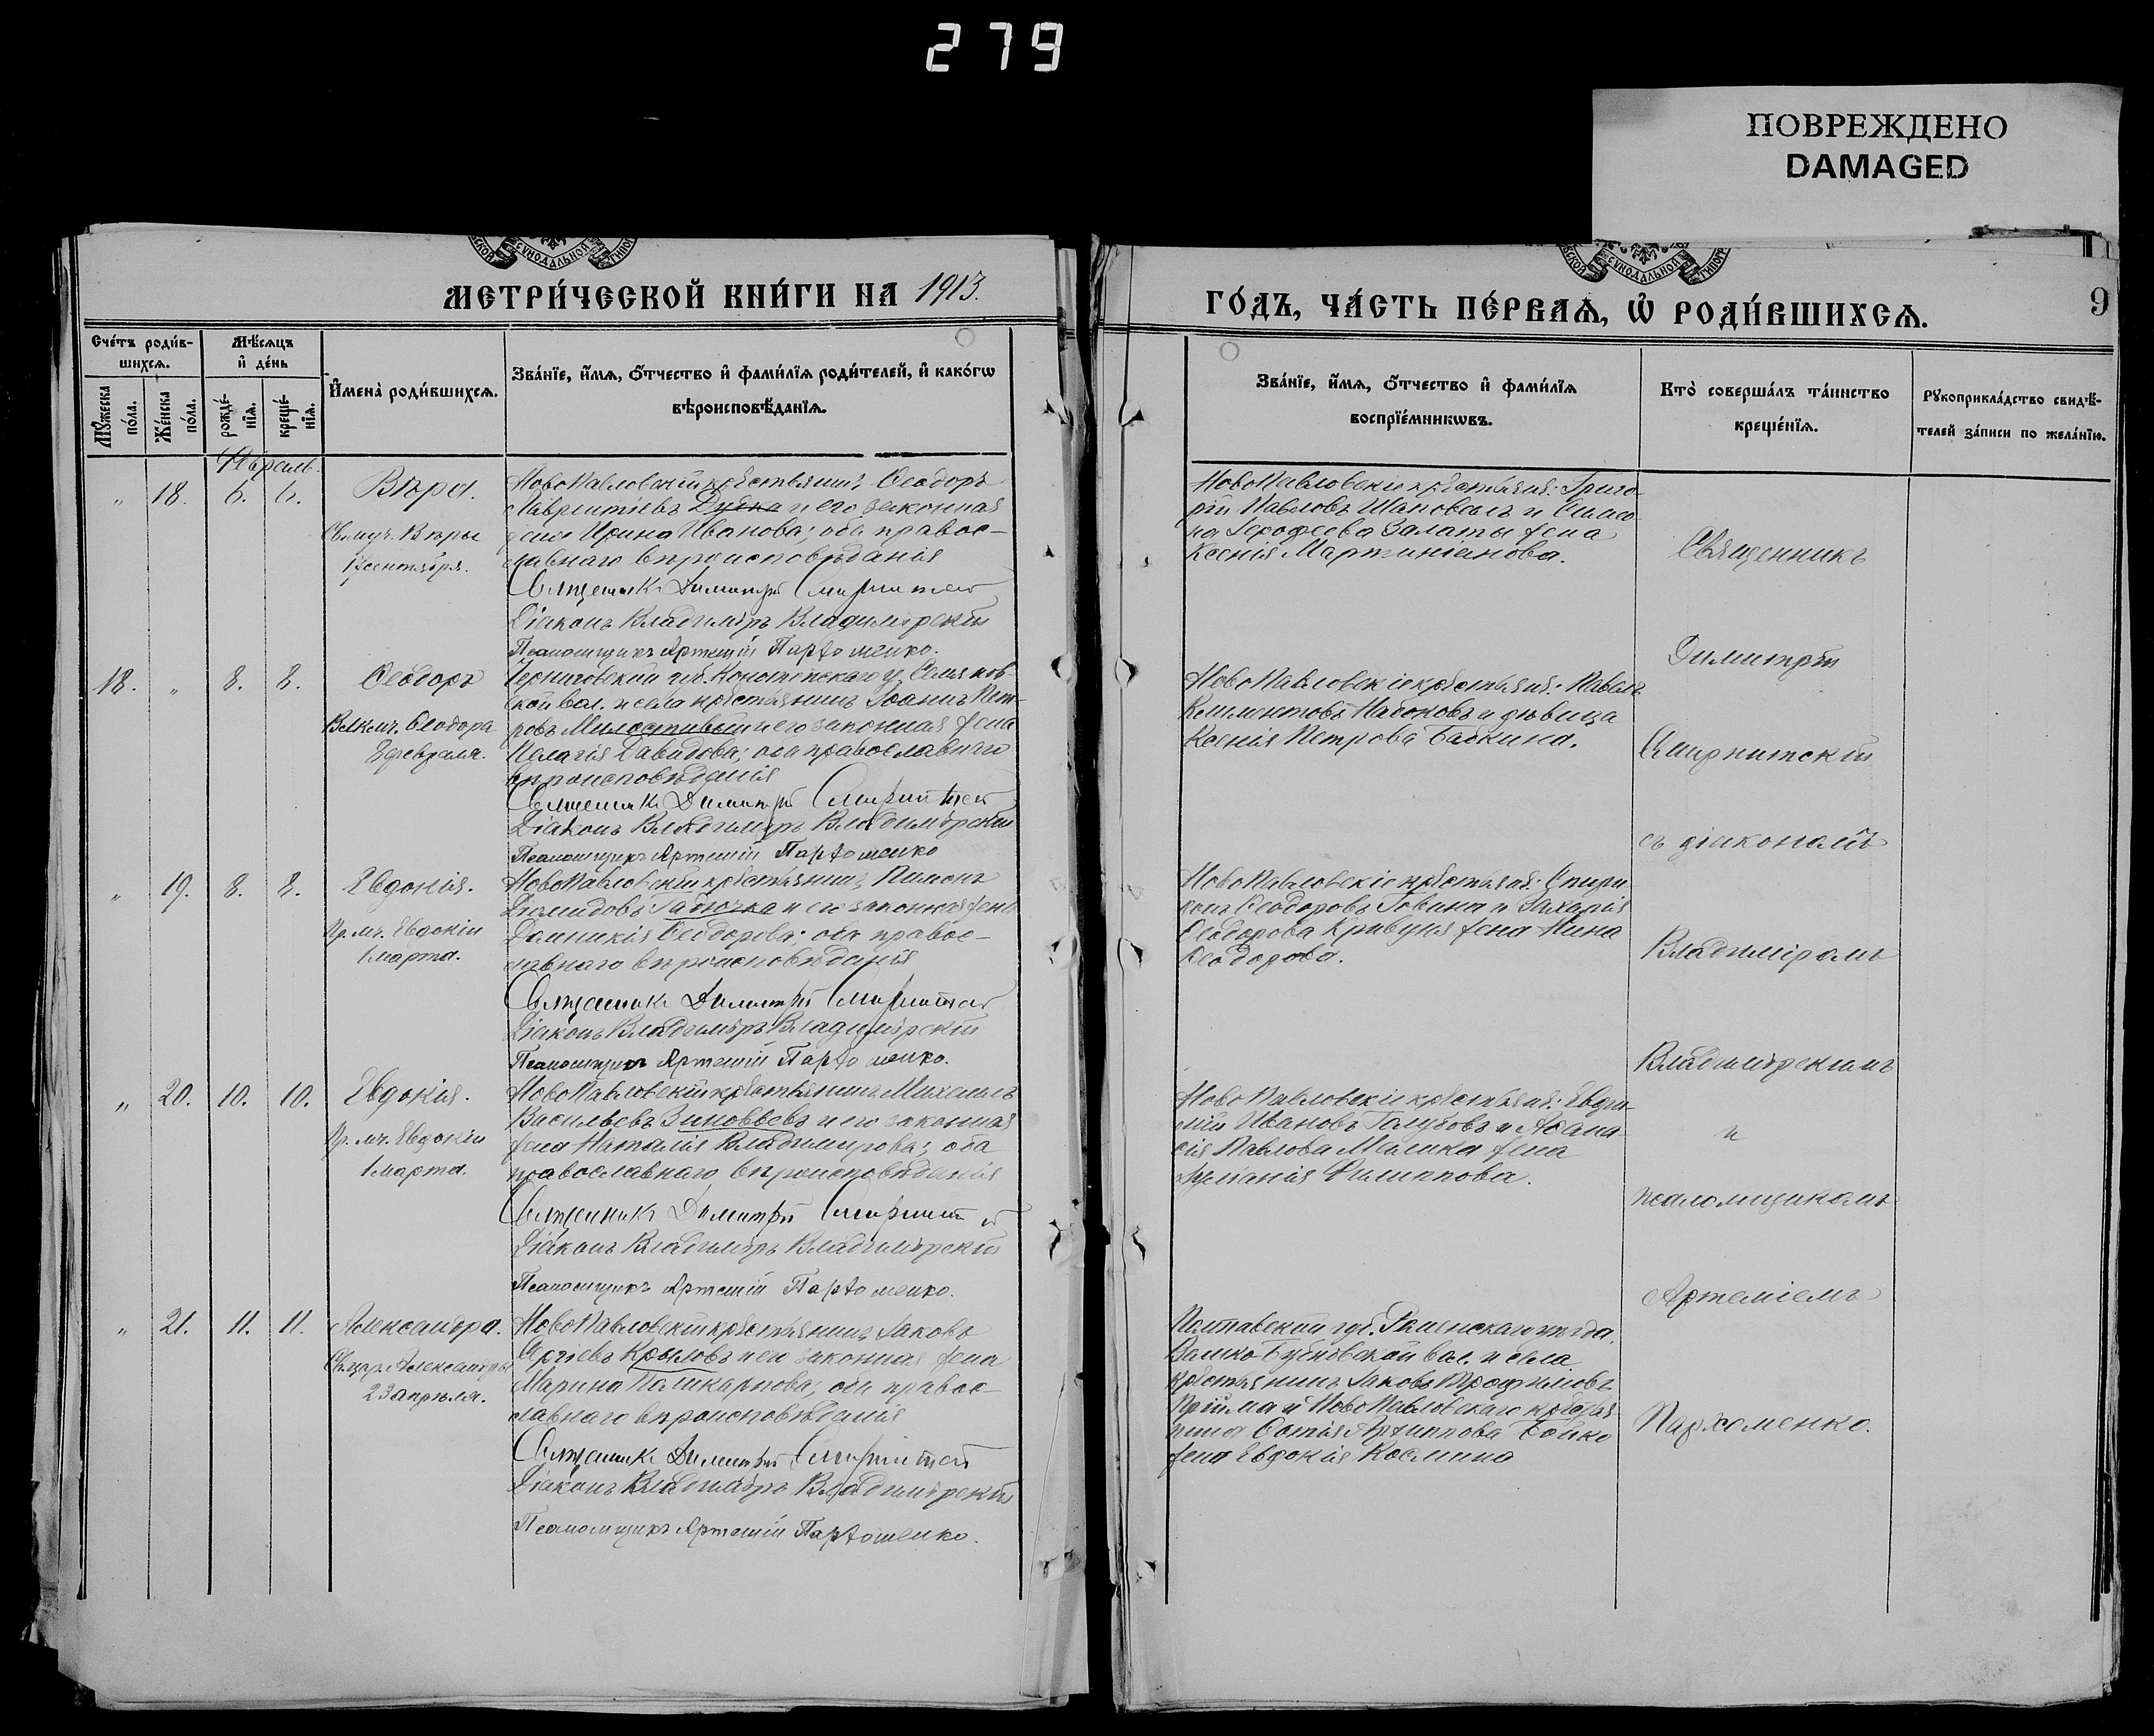 279
ПОВРЕЖДЕНО
DAMAGED
МЕТРИ́ЧЕСКОЙ КНИ́ГИ НА 1913.
ГО́ДЪ, ЧА́СТЬ ПЕ́РВАѦ, Ѽ РОДИ́ВШИХСѦ.
9
Сче́тъ роди́в-
шихсѧ.
Мѣ́сѧцъ
и҆ де́нь
Мꙋ́жеска
по́ла.
Же́нска
по́ла.
рожде́-
нїѧ.
креще́-
нїѧ.
И҆мена̀ роди́вшихсѧ.
Зва́нїе, и҆́мѧ, ѻ҆́тчество и҆ фами́лїѧ роди́телей, и҆ како́гѡ
вѣроисповѣ́данїѧ.
Зва́нїе, и҆́мѧ, ѻ҆́тчество и҆ фами́лїѧ
воспрїе́мникѡвъ.
Кто̀ соверша́лъ та́инство
креще́нїѧ.
Рꙋкоприкла́дство свидѣ́-
телей за́писи по жела́нїю.
Февраль.
„ 18. 6. 6. Вѣра.
Св. муч. Вѣры
сентября.
НовоПавловскій крестьянинъ Ѳеодоръ
Лаврентіевъ и его законная
жена Ирина Иванова; оба правос-
лавнаго вѣроисповѣданія
Священникъ Димитрій
Діаконъ Владиміръ Владимірскій
Псаломщикъ Артемій Пархоменко.
НовоПавловскіе крестьяне: Григо-
рій Павловъ Шаповалъ и
Іерофеева Залаты жена
Ксенія Мартиніанова.
18. „ 8. 8. Ѳеодоръ
Велкмч. Ѳеодора
8 февраля.
Черниговской губ. Конотопскаго у.
вол. и села крестьянинъ Іоаннъ Пет-
ровъ Милостивый и его законная жена
Пелагія Давидова; оба православнаго
вѣроисповѣданія
Священникъ Димитрій
Діаконъ Владиміръ Владимірскій
Псаломщикъ Артемій Пархоменко
НовоПавловскіе крестьяне: Павелъ
Климентовъ Набоковъ и дѣвица
Ксенія Петрова Бабкина.
„ 19. 8. 8. Евдокія.
Пр. мч. Евдокіи
1 марта.
НовоПавловскій крестьянинъ Пименъ
Діомидовъ и его законная жена
Домникія Ѳеодорова; оба правос-
лавнаго вѣроисповѣданія
Священникъ Димитрій
Діаконъ Владиміръ Владимірскій
Псаломщикъ Артемій Пархоменко.
НовоПавловскіе крестьяне: Спири-
донъ Ѳеодоровъ и Захарія
Ѳеодорова Кривуна жена Нина
Ѳеодорова.
„ 20. 10. 10. Евдокія.
Пр. мч. Евдокіи
1 марта.
НовоПавловскій крестьянинъ Михаилъ
Васильевъ Зиновьевъ и его законная
жена Наталія Владимирова; оба
православнаго вѣроисповѣданія
Священникъ Димитрій
Діаконъ Владиміръ Владимірскій
Псаломщикъ Артемій Пархоменко.
НовоПавловскіе крестьяне: Евфи-
мій Ивановъ Голубовъ и Аѳана-
сія Павлова жена
Іуліанія Филиппова.
„ 21. 11. 11. Александра.
Св. цар. Александры
23 апрѣля.
НовоПавловскій крестьянинъ Іаковъ
Сергіевъ Крыловъ и его законная жена
Марина Поликарпова; оба правос-
лавнаго вѣроисповѣданія
Священникъ Димитрій
Діаконъ Владиміръ Владимірскій
Псаломщикъ Артемій Пархоменко.
Полтавской губ. Роменскаго уѣзда
вол. и села
крестьянинъ Іаковъ Трофимовъ
Прійма и НовоПавловскаго крестья-
нина Архиппова Бойко
жена Евдокія Космина
Священникъ
Димитрій
Смирнитскій
съ діакономъ
Владиміромъ
Владимірскимъ
и
псаломщикомъ
Артеміемъ
Пархоменко.